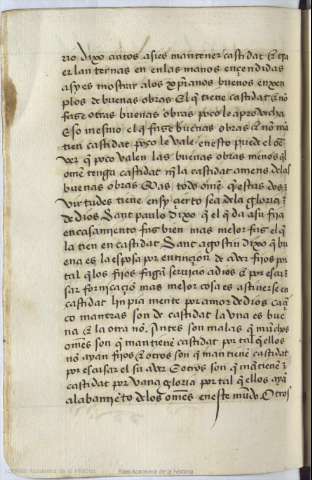 rio dixo catos asi es mantener castidat & tra
er lanternas en enlas manos ençendidas
asy es mostrar alos xpianos buenos enxen
plos de buenas obras El q tiene castidat & no
faze otras buenas obras poco le aprovecha
Eso mesmo el q faze buenas obras & no man
tien castidat poco le vale en esto puede el ome
ver q poco valen las buenas obras menos q el
ome tenga castidat nj la castidat amenos delas
buenas obras Mas todo ome q estas dos
virtudes tiene en sy çierto sea dela gloria
de dios Sant paulo dixo q el q da asu fija
en casamiento faze bien mas mejor faze el q
la tien en castidat Sant agostin dixo q bu
ena es la esposa por entinçion de aver fijos por
tal q los fijos fagan seruiçio adios & por escu
sar forniçaçio mas mejor cosa es astenerse en
castidat linpia mente por amor de dios ca en q
co maneras son de castidat la vna es bue
na & la otra no Antes son malas q muchos
omes son q mantiene castidat por tal q ellos
no ayan fijos & otros son q mantiene castidat
por escusar el su aver & otros son q mantiene
castidat por vana gloria por tal q ellos aya
alabamiento delos omes en este mundo Otros
Real Academia de la Historia